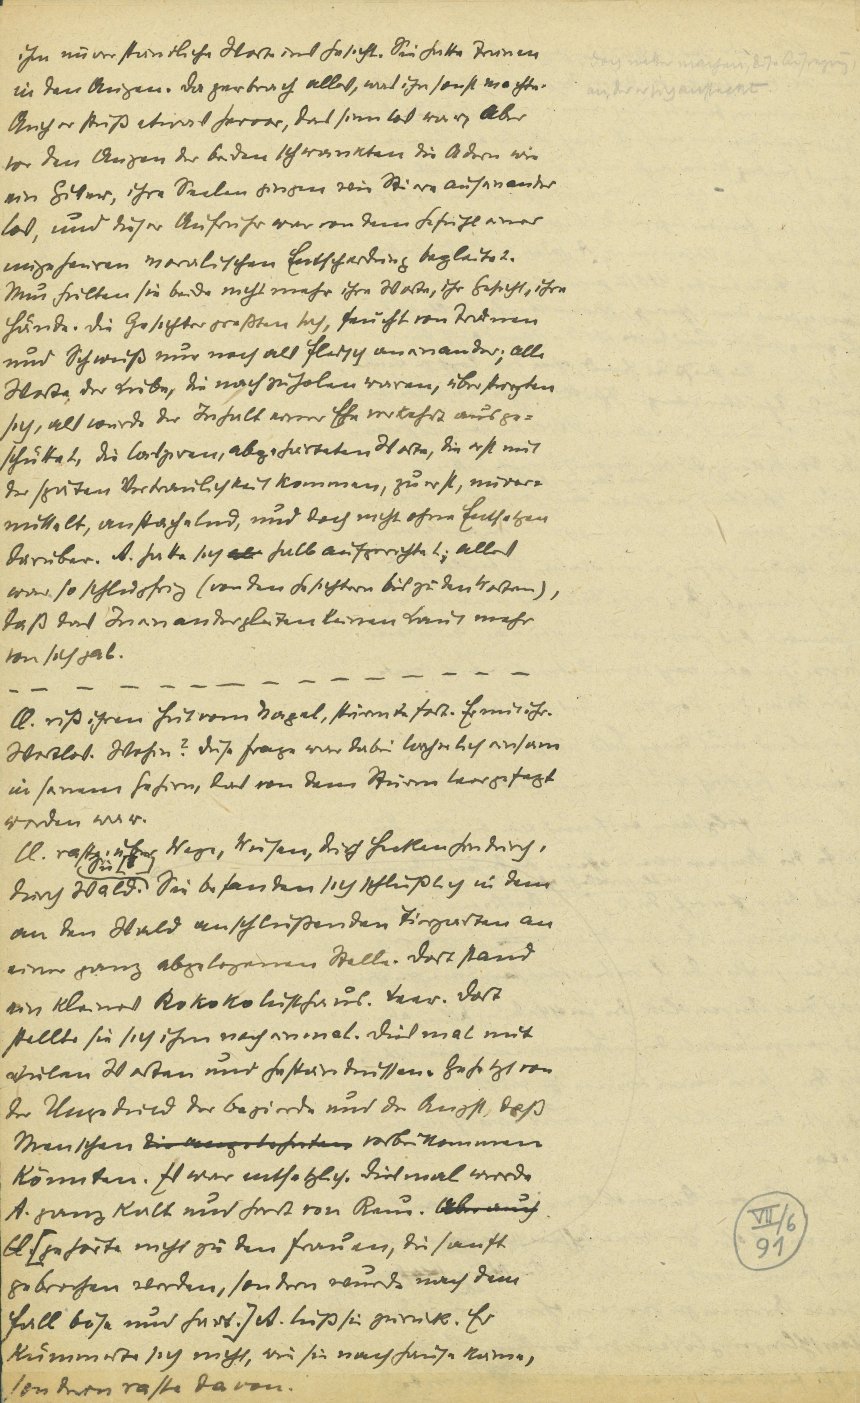 ihr unverständliche Worte ins Gesicht. Sie hatte Tränen
in den Augen. Da zerbrach alles, was ihn sonst machte.
Auch er stieß etwas hervor, das sinnlos war; Aber
vor den Augen der beiden schwankten die Adern wie
ein Gitter, ihre Seelen gingen wie Stiere aufeinander
los, und dieser Aufruhr war von dem Gefühl einer
ungeheuren moralischen Entscheidung begleitet.
Nun hielten sie beide nicht mehr ihre Worte, ihr Gesicht, ihre
Hände. Die Gesichter preßten sich, feucht von Tränen
und Schweiß nur noch als Fleisch aneinander; alle
Worte der Liebe, die nachzuholen waren, überstürzten
sich, als würde der Inhalt einer Ehe verkehrt ausge=
schüttet, die lasziven, abgehärteten Worte, die erst mit
der späten Vertraulichkeit kommen, zuerst, unver=
mittelt, anstachelnd, und doch nicht ohne Entsetzen
darüber. A. hatte sich halb aufgerichtet; alles
war so schlüpfrig (von den Gesichtern bis zu den Worten),
daß das Ineinandergleiten keinen Laut mehr
von sich gab.
Cl. riß ihren Hut vom Nagel, stürmte fort. Er mit ihr.
Wortlos. Wohin? Diese Frage war dabei lächerlich einsam
in seinem Gehirn, das von dem Sturm leergefegt
worden war.
Cl. raste über Wege, Wiesen, durch Hecken hindurch,
durch Wald. Sie befanden sich schließlich in dem
an den Wald anschließenden Tiergarten an
einer ganz abgelegenen Stelle. Dort stand
ein kleines Rokokolusthaus. Leer. Dort
stellte sie sich ihm noch einmal. Diesmal mit
vielen Worten und Geständnissen. Gehetzt von
der Ungeduld der Begierde und der Angst, daß
Menschen vorbeikommen
könnten. Es war entsetzlich. Diesmal wurde
A. ganz kalt und hart von Reue. Aber auch
Cl [gehörte nicht zu den Frauen, die sanft
gebrochen werden, sondern wurde nach dem
Fall böse und hart.] A. ließ sie zurück. Er
kümmerte sich nicht, wie sie nach Hause käme,
sondern raste davon.
VII/6
91